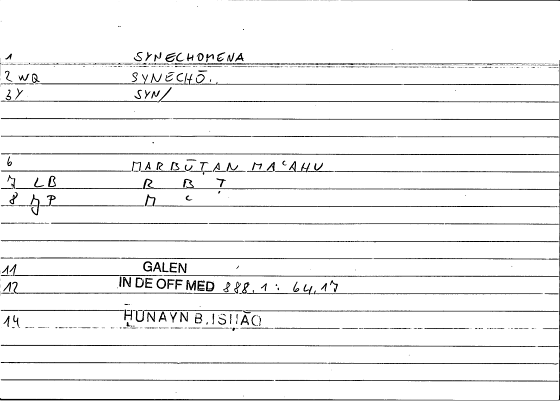 1 SYNECHOMENA
2 WQ SYNECHŌ..
3 Y SYN/
6 MARBŪṬAN MAʿAHU
7 LB R B Ṭ
8 JP M ʿ
11 GALEN
12 IN DE OFF MED 888,1 : 64,17
14 ḤUNAYN B. ISḤĀQ